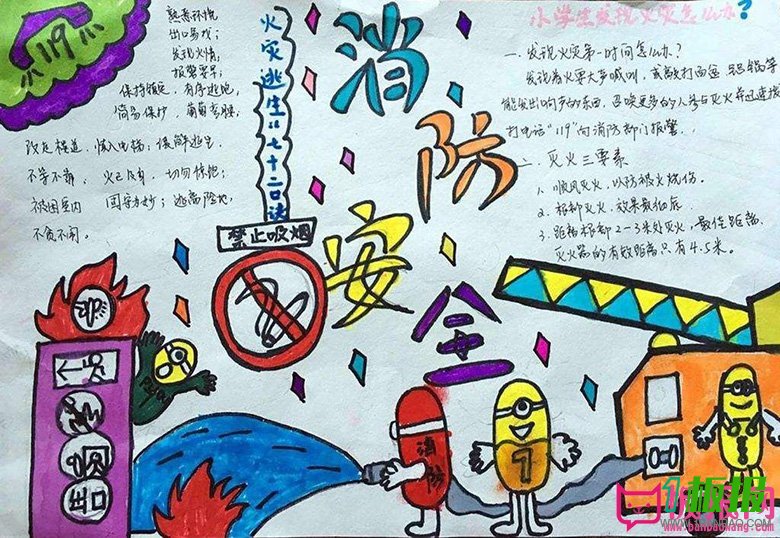 119
熟悉环境
出口易找；
发现火情，
报警要早；
保持镇定，有序逃跑；
简易保护，匍匐弯腰；
慎入电梯；缓解逃生
不等不靠，火已及身，切勿惊跑；
被困室内，固守为妙；远离险地，
不贪不闹。
火灾逃生"七十二口诀
消防安全
禁止吸烟
小学生发现火灾怎么办？
一、发现火灾第一时间怎么办？
发现着火要大声喊叫，或敲打面盆、锅等
能发出响声的东西，召唤更多的人参与灭火并迅速拨
打电话"119"向消防部门报警。
二、灭火三要素
1、顺风灭火，以防被火烧伤。
2、根部灭火，效果最佳
3、距离根部2-3米处灭火，最佳距离。
灭火器的有效距离只有4.5米。
出口
消防
1
板报
www.banbaowang.com